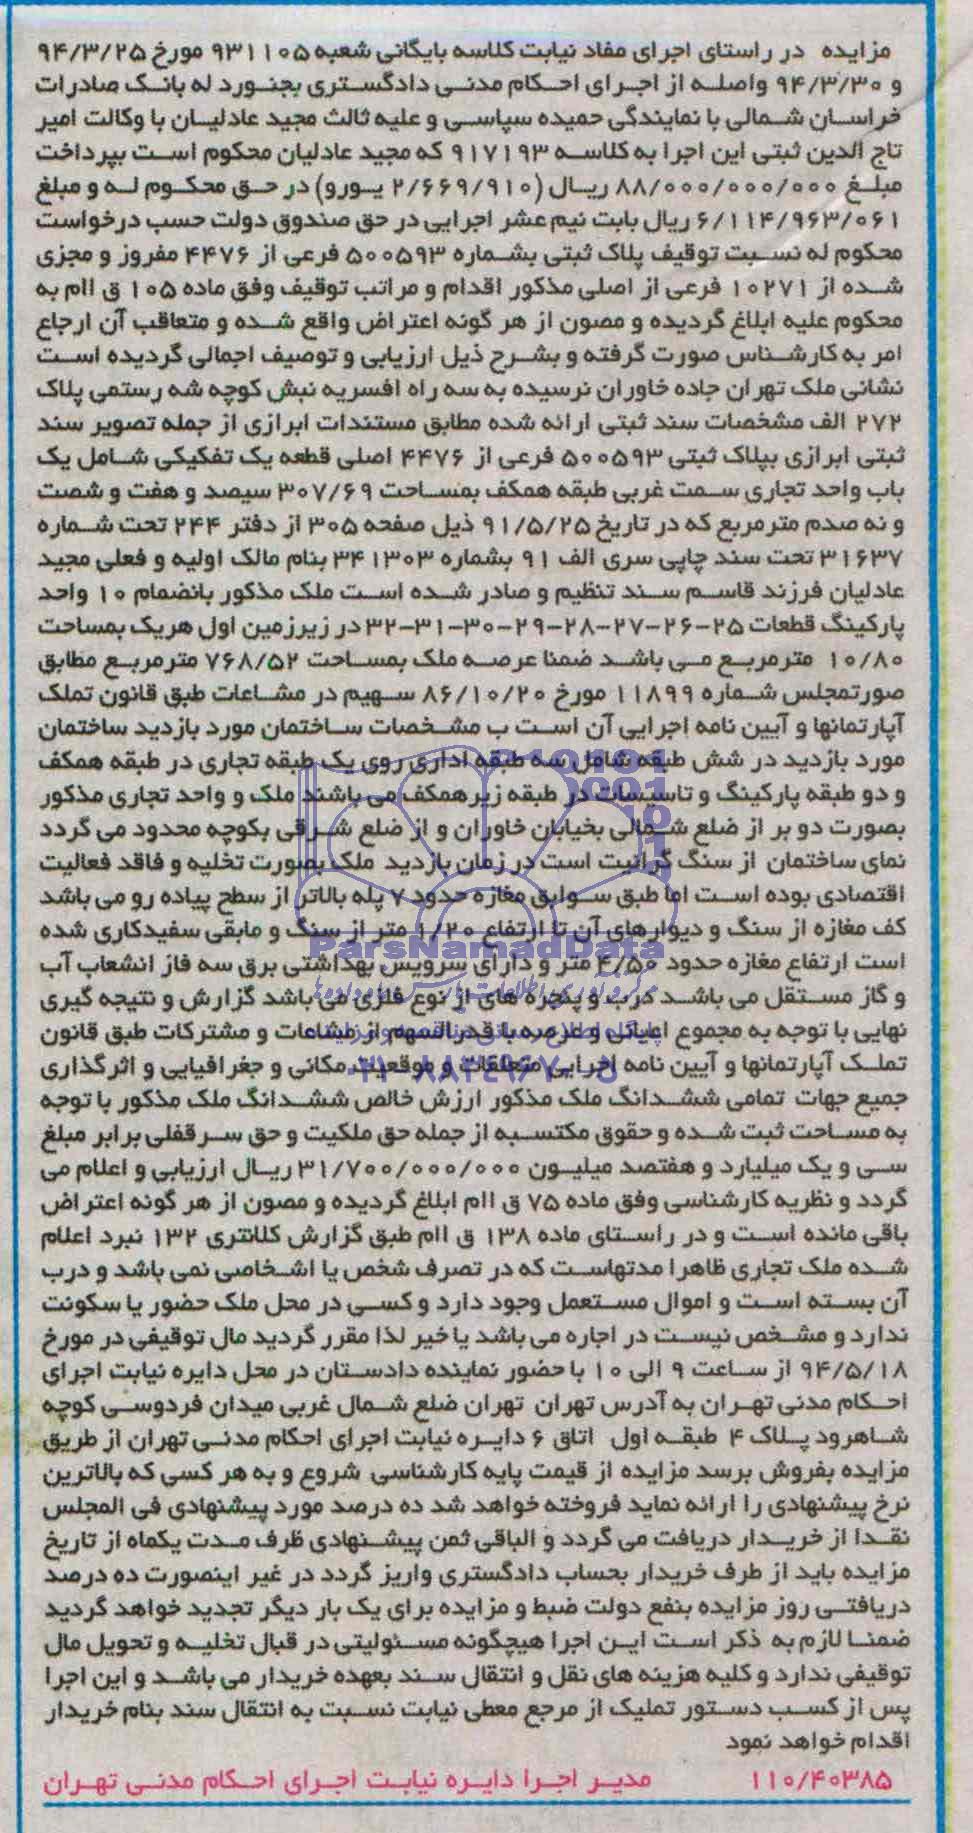 مزایده در راستای اجرای مفاد نیابت کلاسه بایگانی شعبه ۹۳۱۱۰۵ مورخ ۹۴/۳/۲۵
و ۹۴/۳/۳۰ واصله از اجرای احکام مدنی دادگستری بجنورد له بانک صادرات
خراسان شمالی با نمایندگی حمیده سپاسی و علیه ثالث مجید عادلیان با وکالت امیر
تاج الدین ثبتی این اجرا به کلاسه ۹۱۷۱۹۳ که مجید عادلیان محکوم است بپرداخت
مبلغ ۸۸/۰۰۰/۰۰۰/۰۰۰ ریال (۲/۶۶۹/۹۱۰ یورو) در حق محکوم له و مبلغ
۶/۱۱۴/۹۶۳/۰۶۱ ریال بابت نیم عشر اجرایی در حق صندوق دولت حسب درخواست
محکوم له نسبت توقیف پلاک ثبتی بشماره ۵۰۰۵۹۳ فرعی از ۴۴۷۶ مفروز و مجزی
شده از ۱۰۲۷۱ فرعی از اصلی مذکور اقدام و مراتب توقیف وفق ماده ۱۰۵ ق اام به
محکوم علیه ابلاغ گردیده و مصون از هر گونه اعتراض واقع شده و متعاقب آن ارجاع
امر به کارشناس صورت گرفته و بشرح ذیل ارزیابی و توصیف اجمالی گردیده است
نشانی ملک تهران جاده خاوران نرسیده به سه راه افسریه نبش کوچه شه رستمی پلاک
۲۷۲ الف مشخصات سند ثبتی ارائه شده مطابق مستندات ابرازی از جمله تصویر سند
ثبتی ابرازی بپلاک ثبتی ۵۰۰۵۹۳ فرعی از ۴۴۷۶ اصلی قطعه یک تفکیکی شامل یک
باب واحد تجاری سمت غربی طبقه همکف بمساحت ۳۰۷/۶۹ سیصد و هفت و شصت
و نه صدم مترمربع که در تاریخ ۹۱/۵/۲۵ ذیل صفحه ۳۰۵ از دفتر ۲۴۴ تحت شماره
۳۱۶۳۷ تحت سند چاپی سری الف ۹۱ بشماره ۳۴۱۳۰۳ بنام مالک اولیه و فعلی مجید
عادلیان فرزند قاسم سند تنظیم و صادر شده است ملک مذکور بانضمام ۱۰ واحد
پارکینگ قطعات ۲۵-۲۶-۲۷-۲۸-۲۹-۳۰-۳۱-۳۲ در زیرزمین اول هریک بمساحت
۱۰/۸۰ مترمربع می باشد ضمنا عرصه ملک بمساحت ۷۶۸/۵۲ مترمربع مطابق
صورتمجلس شماره ۱۱۸۹۹ مورخ ۸۶/۱۰/۲۰ سهیم در مشاعات طبق قانون تملک
آپارتمانها و آیین نامه اجرایی آن است ب مشخصات ساختمان مورد بازدید ساختمان
مورد بازدید در شش طبقه شامل سه طبقه اداری روی یک طبقه تجاری در طبقه همکف
و دو طبقه پارکینگ و تاسیسات در طبقه زیرهمکف می باشند ملک و واحد تجاری مذکور
بصورت دو بر از ضلع شمالی بخیابان خاوران و از ضلع شرقی بکوچه محدود می گردد
نمای ساختمان از سنگ گرانیت است در زمان بازدید ملک بصورت تخلیه و فاقد فعالیت
اقتصادی بوده است اما طبق سوابق مغازه حدود ۷ پله بالاتر از سطح پیاده رو می باشد
کف مغازه از سنگ و دیوارهای آن تا ارتفاع ۱/۲۰ متر از سنگ و مابقی سفیدکاری شده
ParsNamadData
است ارتفاع مغازه حدود ۴/۵۰ متر و دارای سرویس بهداشتی برق سه فاز انشعاب آب
و گاز مستقل می باشد درب و پنجره های از نوع فلزی می باشد گزارش و نتیجه گیری
نهایی با توجه به مجموع اعیانی و عرصه با قدرالسهم از مشاعات و مشترکات طبق قانون
تملک آپارتمانها و آیین نامه اجرایی متعلقات و موقعیت مکانی و جغرافیایی و اثرگذاری
جمیع جهات تمامی ششدانگ ملک مذکور ارزش خالص ششدانگ ملک مذکور با توجه
به مساحت ثبت شده و حقوق مکتسبه از جمله حق ملکیت و حق سرقفلی برابر مبلغ
سی و یک میلیارد و هفتصد میلیون ۳۱/۷۰۰/۰۰۰/۰۰۰ ریال ارزیابی و اعلام می
گردد و نظریه کارشناسی وفق ماده ۷۵ ق اام ابلاغ گردیده و مصون از هر گونه اعتراض
باقی مانده است و در راستای ماده ۱۳۸ ق اام طبق گزارش کلانتری ۱۳۲ نبرد اعلام
شده ملک تجاری ظاهرا مدتهاست که در تصرف شخص یا اشخاصی نمی باشد و درب
آن بسته است و اموال مستعمل وجود دارد و کسی در محل ملک حضور یا سکونت
ندارد و مشخص نیست در اجاره می باشد یا خیر لذا مقرر گردید مال توقیفی در مورخ
۹۴/۵/۱۸ از ساعت ۹ الی ۱۰ با حضور نماینده دادستان در محل دایره نیابت اجرای
احکام مدنی تهران به آدرس تهران تهران ضلع شمال غربی میدان فردوسی کوچه
شاهرود پلاک ۴ طبقه اول اتاق ۶ دایره نیابت اجرای احکام مدنی تهران از طریق
مزایده بفروش برسد مزایده از قیمت پایه کارشناسی شروع و به هر کسی که بالاترین
نرخ پیشنهادی را ارائه نماید فروخته خواهد شد ده درصد مورد پیشنهادی فی المجلس
نقدا از خریدار دریافت می گردد و الباقی ثمن پیشنهادی ظرف مدت یکماه از تاریخ
مزایده باید از طرف خریدار بحساب دادگستری واریز گردد در غیر اینصورت ده درصد
دریافتی روز مزایده بنفع دولت ضبط و مزایده برای یک بار دیگر تجدید خواهد گردید
ضمنا لازم به ذکر است این اجرا هیچگونه مسئولیتی در قبال تخلیه و تحویل مال
توقیفی ندارد و کلیه هزینه های نقل و انتقال سند بعهده خریدار می باشد و این اجرا
پس از کسب دستور تملیک از مرجع معطی نیابت نسبت به انتقال سند بنام خریدار
اقدام خواهد نمود
۱۱۰/۴۰۳۸۵ مدیر اجرا دایره نیابت اجرای احکام مدنی تهران